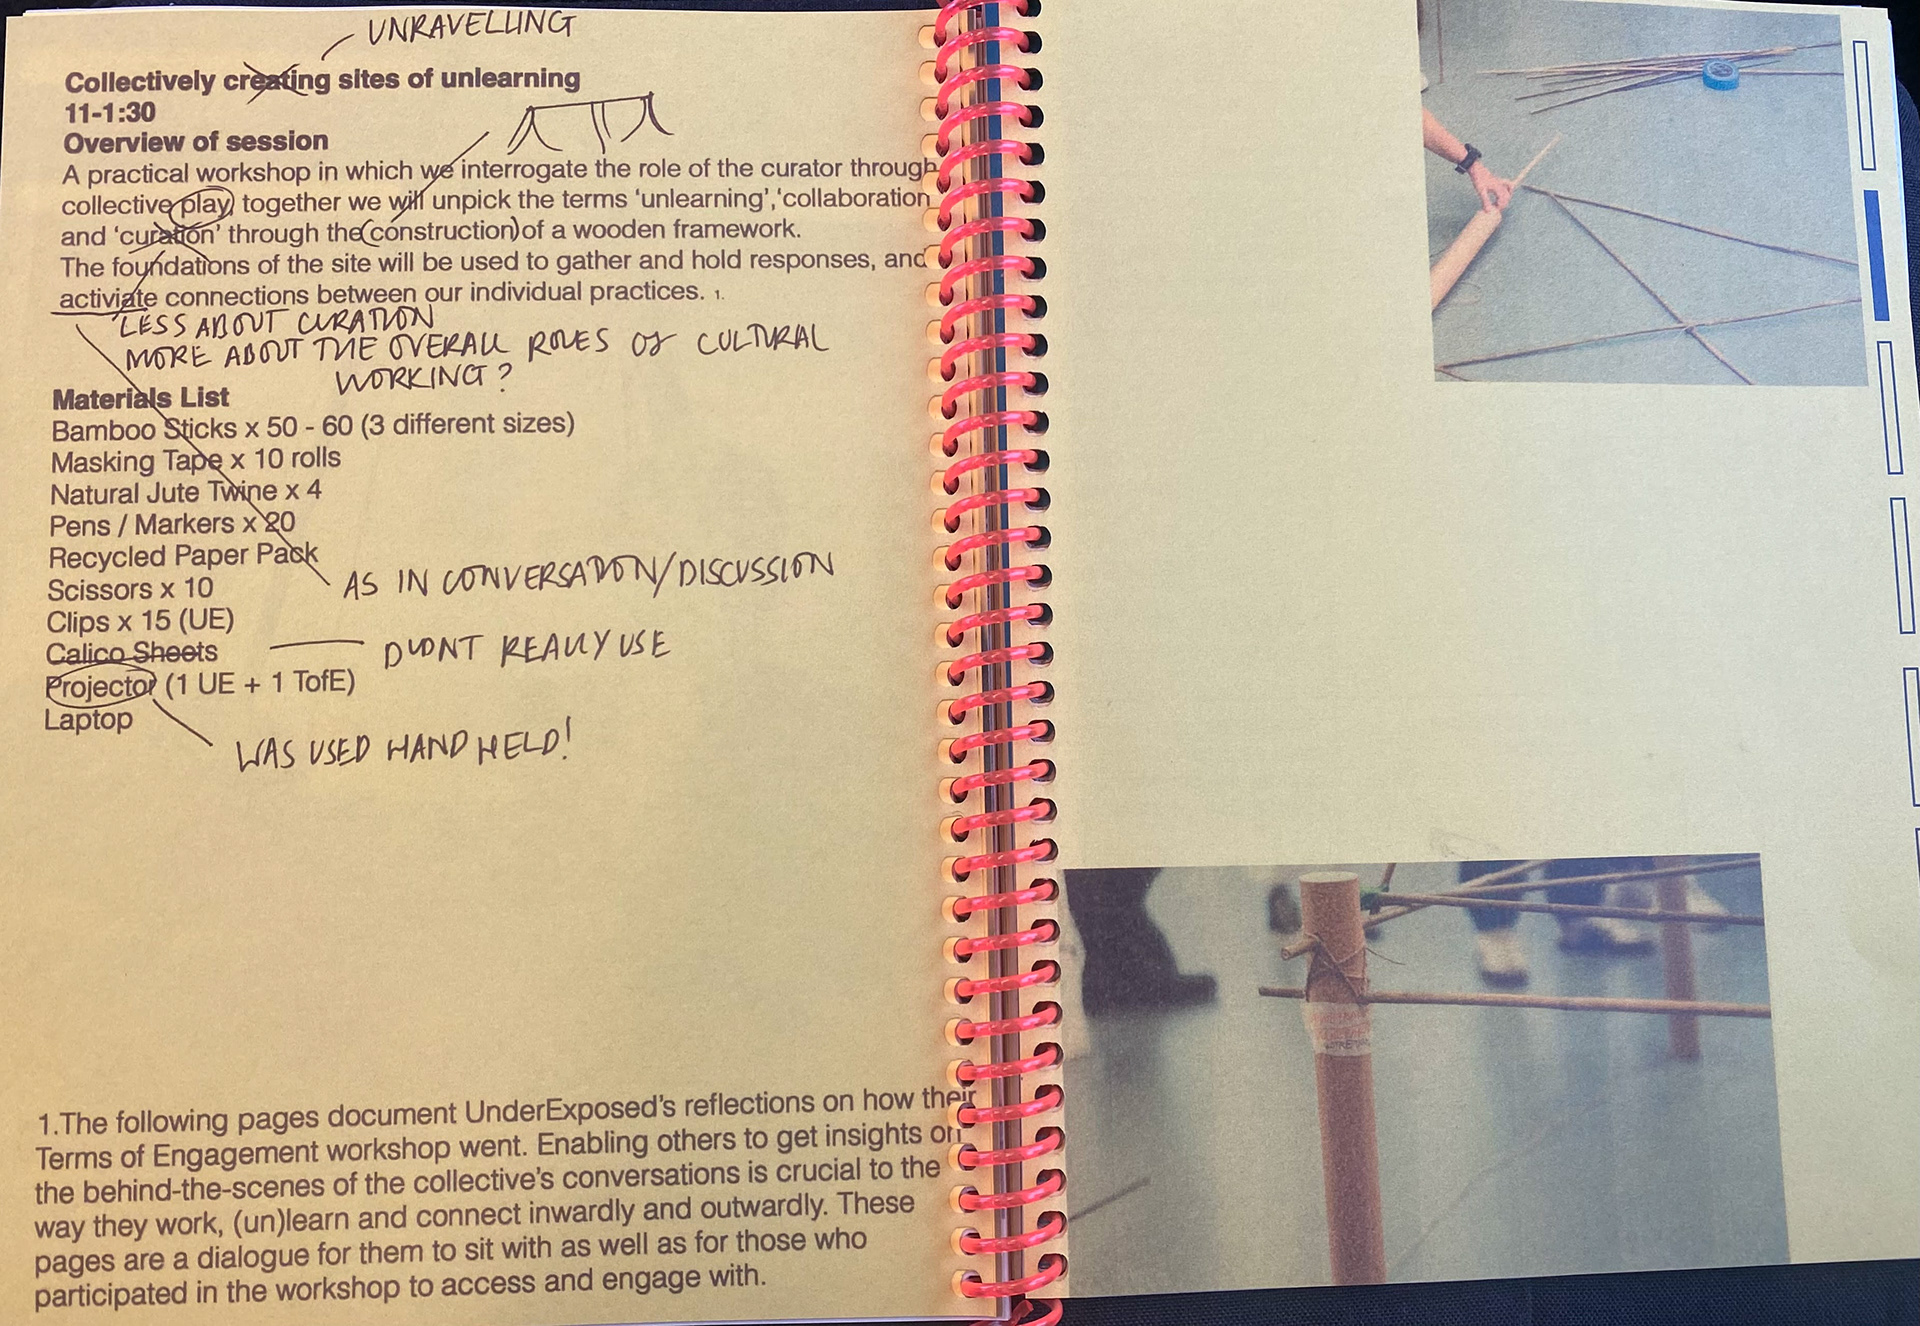 UNRAVELLING
Collectively creating sites of unlearning
11-1:30
Overview of session
A practical workshop in which we interrogate the role of the curator through
collective play, together we will unpick the terms ‘unlearning’,‘collaboration
and ‘curation’ through the construction of a wooden framework.
The foundations of the site will be used to gather and hold responses, and
activiate connections between our individual practices. 1.
LESS ABOUT CURATION
MORE ABOUT THE OVERALL ROLES OF CULTURAL
WORKING?
Materials List
Bamboo Sticks x 50 - 60 (3 different sizes)
Masking Tape x 10 rolls
Natural Jute Twine x 4
Pens / Markers x 20
Recycled Paper Pack
AS IN CONVERSATION/DISCUSSION
Scissors x 10
Clips x 15 (UE)
Calico Sheets
DIDNT REALLY USE
Projector (1 UE + 1 TofE)
Laptop
WAS USED HAND HELD!
1.The following pages document UnderExposed’s reflections on how their
Terms of Engagement workshop went. Enabling others to get insights on
the behind-the-scenes of the collective’s conversations is crucial to the
way they work, (un)learn and connect inwardly and outwardly. These
pages are a dialogue for them to sit with as well as for those who
participated in the workshop to access and engage with.